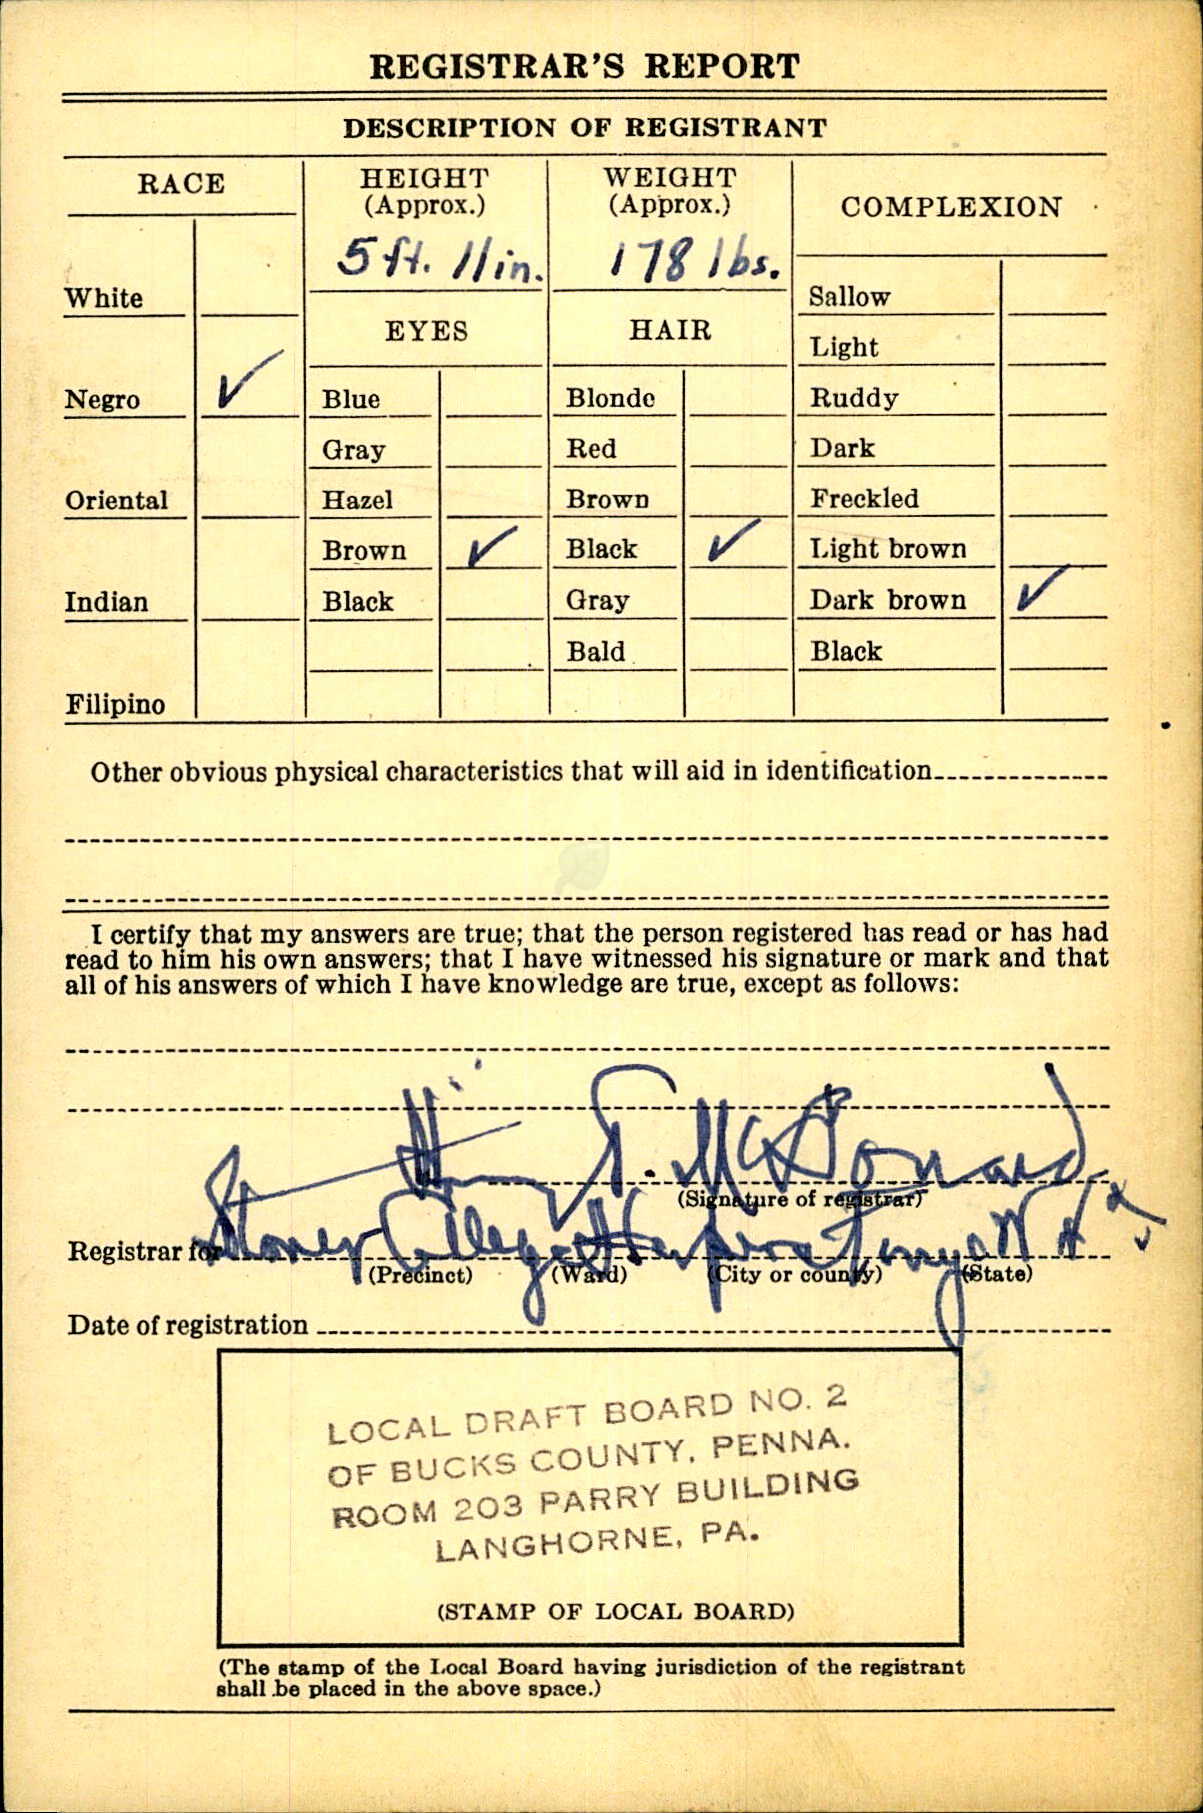 REGISTRAR'S REPORT
DESCRIPTION OF REGISTRANT
RACE
HEIGHT
(Approx.)
WEIGHT
(Approx.)
COMPLEXION
5 ft. 11 in.
178 lbs.
White
EYES
HAIR
Sallow
Light
Negro ✓
Blue
Blonde
Ruddy
Gray
Red
Dark
Oriental
Hazel
Brown
Freckled
Brown ✓
Black ✓
Light brown
Indian
Black
Gray
Dark brown ✓
Bald
Black
Filipino
Other obvious physical characteristics that will aid in identification
I certify that my answers are true; that the person registered has read or has had
read to him his own answers; that I have witnessed his signature or mark and that
all of his answers of which I have knowledge are true, except as follows:
Henry T. McDonald
(Signature of registrar)
Registrar for Storer College Harpers Ferry W Va
(Precinct) (Ward) (City or county) (State)
Date of registration
LOCAL DRAFT BOARD NO. 2
OF BUCKS COUNTY, PENNA.
ROOM 203 PARRY BUILDING
LANGHORNE, PA.
(STAMP OF LOCAL BOARD)
(The stamp of the Local Board having jurisdiction of the registrant
shall be placed in the above space.)